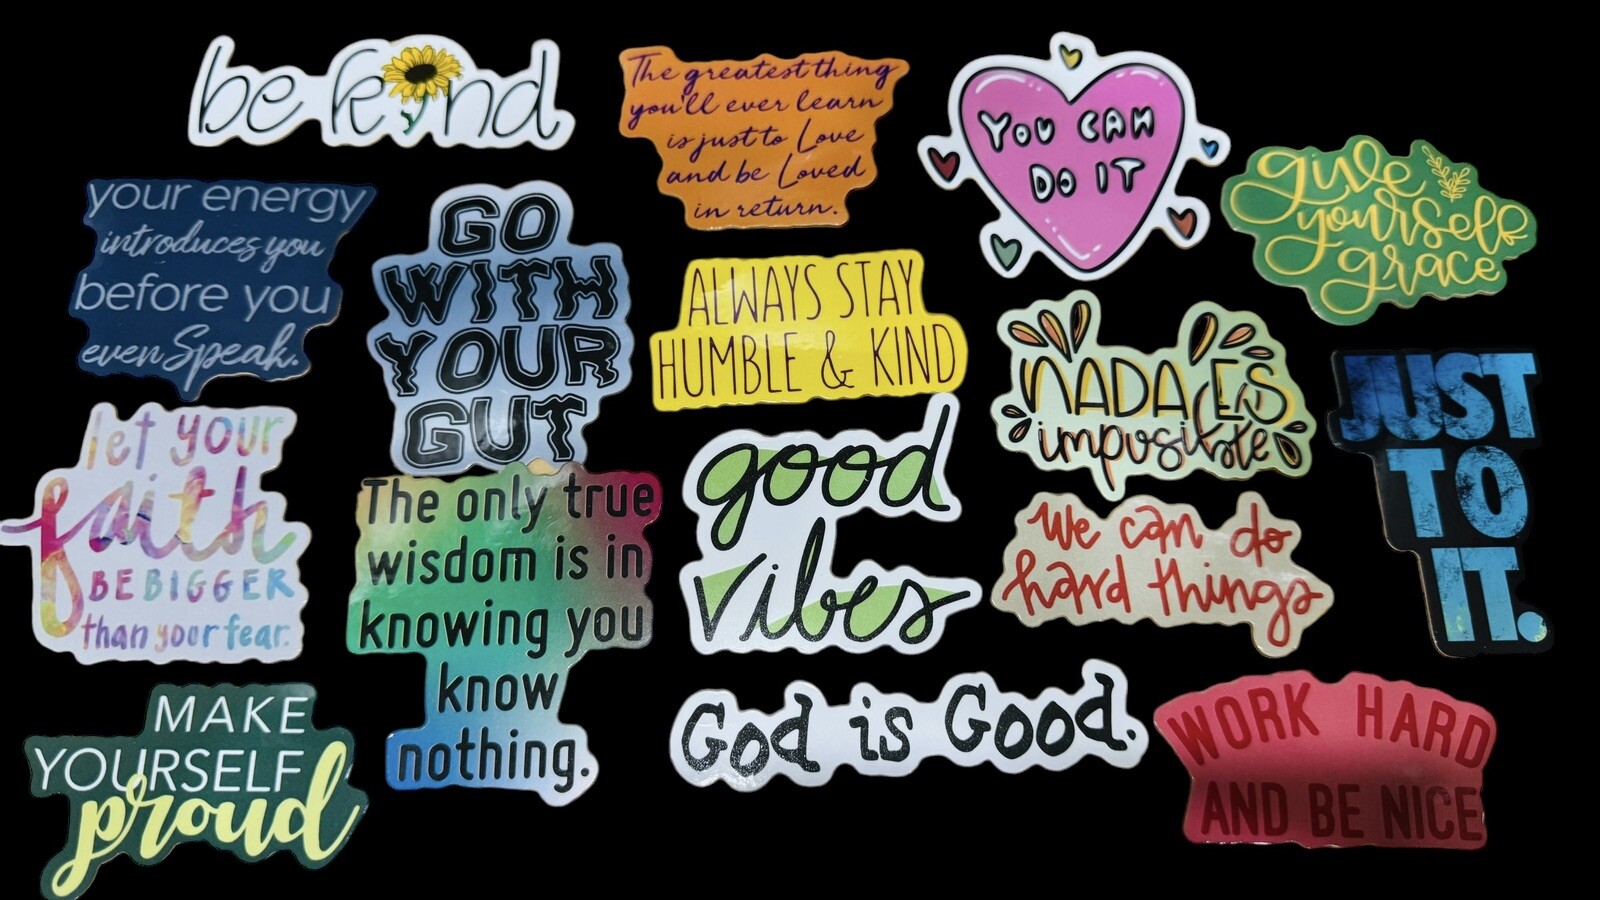 be kind
The greatest thing
you'll ever learn
is just to Love
and be Loved
in return.
YOU CAN
DO IT
give
yourself
grace
your energy
introduces you
before you
even Speak.
GO
WITH
YOUR
GUT
ALWAYS STAY
HUMBLE & KIND
NADA ES
imposible
JUST
TO
IT.
let your
faith
BE BIGGER
than your fear.
The only true
wisdom is in
knowing you
know
nothing.
good
vibes
We can do
hard things
MAKE
YOURSELF
proud
God is Good.
WORK HARD
AND BE NICE